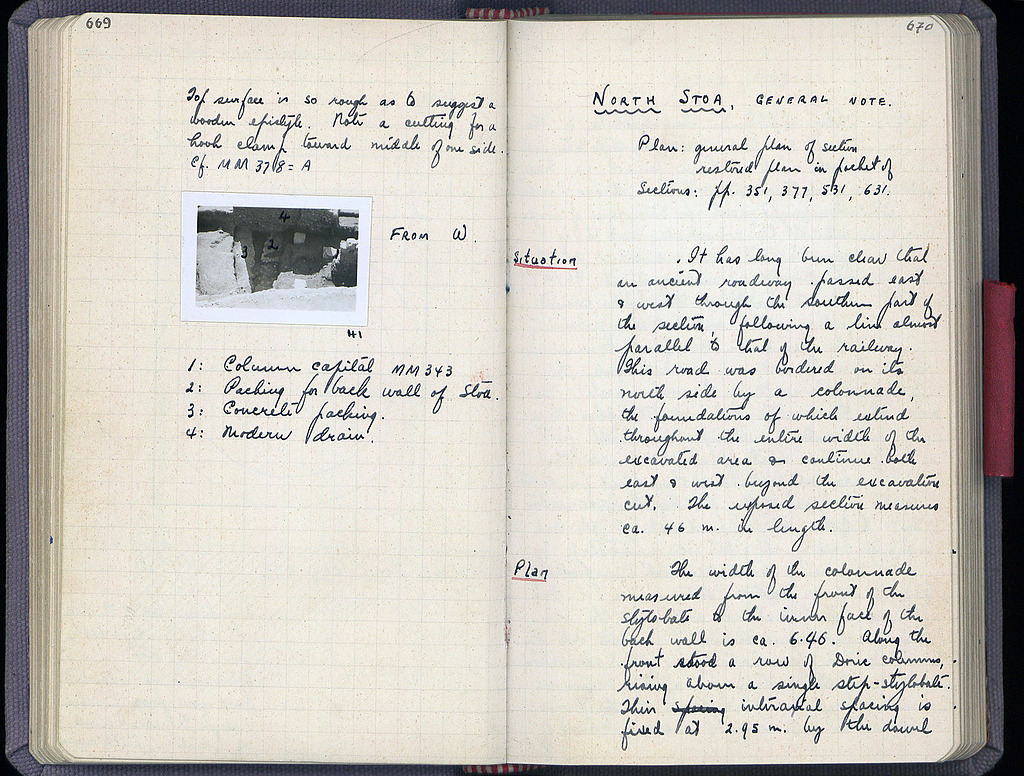 669
Top surface is so rough as to suggest a
wooden epistyle. Note a cutting for a
hook clamp toward middle of one side.
Cf. MM 378 = A
4
2
3
1
FROM W.
H1
1: Column capital MM 343
2: Packing for back wall of Stoa.
3: Concrete packing.
4: Modern drain.
670
NORTH STOA, GENERAL NOTE.
Plan: general plan of section
restored plan in pocket of
Sections: pp. 351, 377, 531, 631.
Situation
It has long been clear that
an ancient roadway passed east
& west through the southern part of
the section, following a line almost
parallel to that of the railway.
This road was bordered on its
north side by a colonnade,
the foundations of which extend
throughout the entire width of the
excavated area & continue both
east & west beyond the excavation
cut. The exposed section measures
ca. 46 m. in length.
Plan
The width of the colonnade
measured from the front of the
stylobate to the inner face of the
back wall is ca. 6.46. Along the
front stood a row of Doric columns,
rising above a single step-stylobate.
Their spacing interaxial spacing is
fixed at 2.95 m. by the dowel